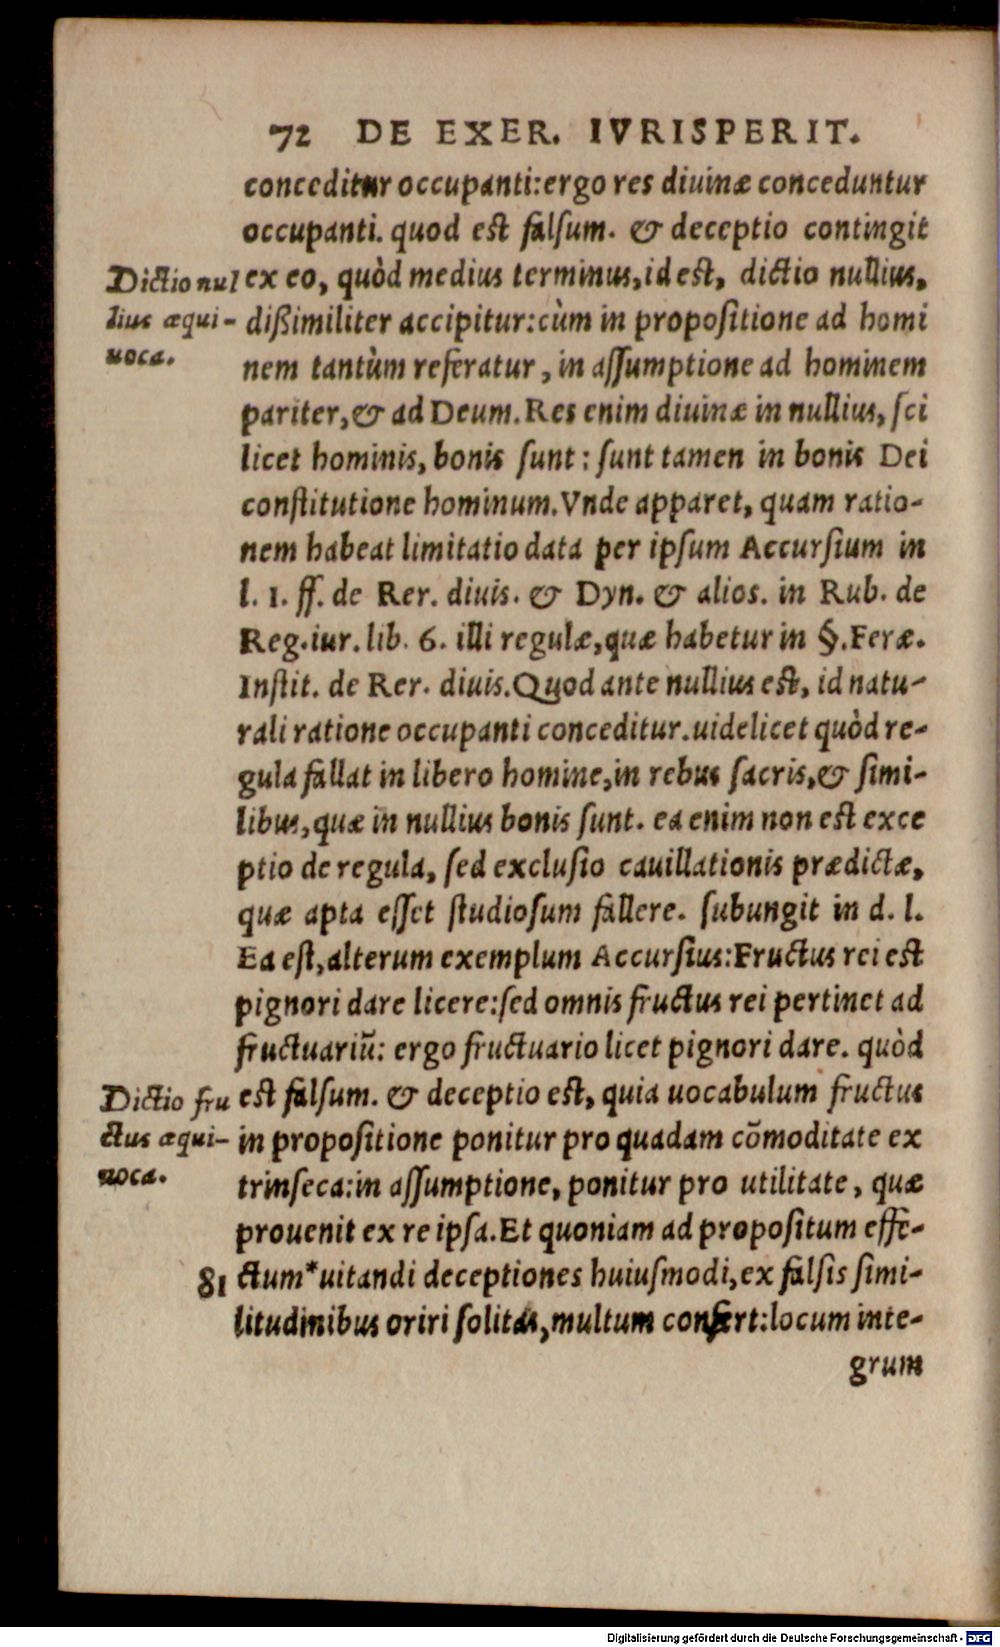 72 DE EXER. IVRISPERIT.
conceditur occupanti:ergo res diuinæ conceduntur
occupanti. quod est falsum. & deceptio contingit
Dictio nul
lius æqui-
uoca.
ex eo, quòd medius terminus,id est, dictio nullius,
dißimiliter accipitur:cùm in propositione ad homi
nem tantùm referatur, in assumptione ad hominem
pariter,& ad Deum.Res enim diuinæ in nullius, sci
licet hominis, bonis sunt: sunt tamen in bonis Dei
constitutione hominum.Vnde apparet, quam ratio-
nem habeat limitatio data per ipsum Accursium in
l. 1. ff. de Rer. diuis. & Dyn. & alios. in Rub. de
Reg.iur. lib. 6. illi regulæ,quæ habetur in §.Feræ.
Instit. de Rer. diuis.Quod ante nullius est, id natu-
rali ratione occupanti conceditur.uidelicet quòd re-
gula fallat in libero homine,in rebus sacris,& simi-
libus,quæ in nullius bonis sunt. ea enim non est exce
ptio de regula, sed exclusio cauillationis prædictæ,
quæ apta esset studiosum fallere. subungit in d. l.
Ea est,alterum exemplum Accursius:Fructus rei est
pignori dare licere:sed omnis fructus rei pertinet ad
fructuariũ: ergo fructuario licet pignori dare. quòd
Dictio fru
ctus æqui-
uoca.
est falsum. & deceptio est, quia uocabulum fructus
in propositione ponitur pro quadam cõmoditate ex
trinseca:in assumptione, ponitur pro utilitate, quæ
prouenit ex re ipsa.Et quoniam ad propositum effe-
81 ctum*uitandi deceptiones huiusmodi,ex falsis simi-
litudinibus oriri solitas,multum confert:locum inte-
grum
Digitalisierung gefördert durch die Deutsche Forschungsgemeinschaft - DFG